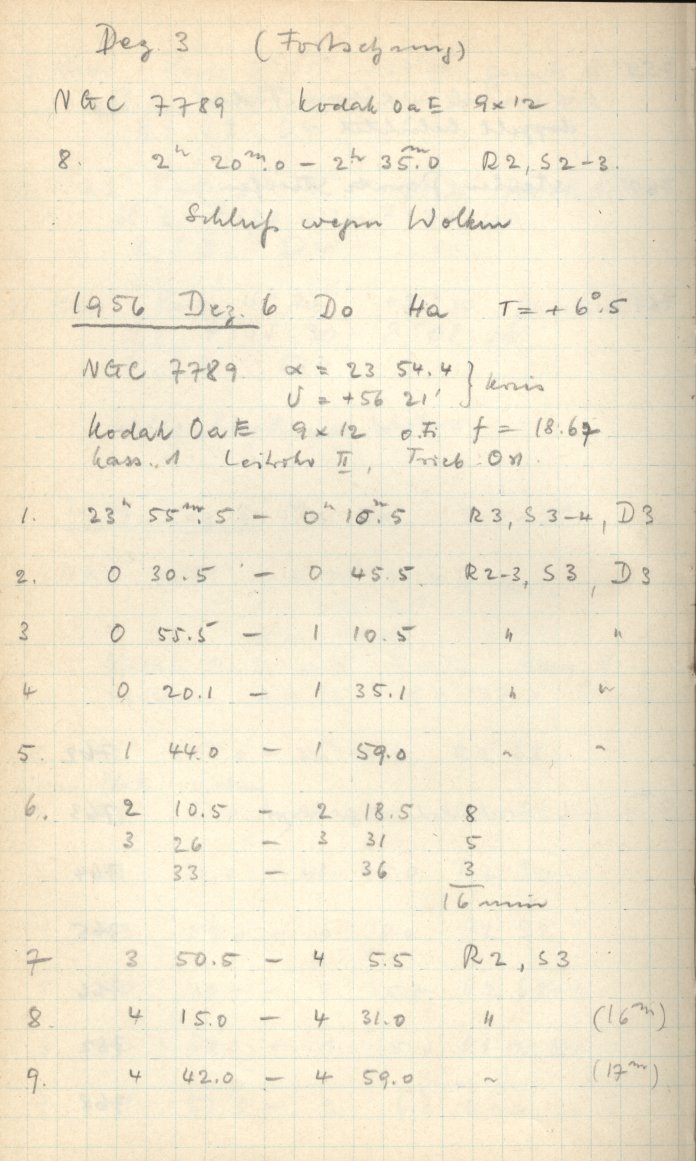 Dez 3 (Fortsetzung)
NGC 7789 Kodak OaE 9x12
8. 2ʰ 20ᵐ.0 – 2ʰ 35ᵐ.0 R2, S2-3.
Schluß wegen Wolken
1956 Dez. 6 Do Ha T = + 6°.5
NGC 7789 α = 23 54.4
δ = +56 21' }
Kodak OaE 9x12 o.Fi f = 18.67
Kass. 1 Leitrohr II, Trieb Ost.
1. 23ʰ 55ᵐ.5 – 0ʰ 10ᵐ.5 R3, S3-4, D3
2. 0 30.5 – 0 45.5 R2-3, S3, D3
3 0 55.5 – 1 10.5 " "
4 0 20.1 – 1 35.1 " "
5. 1 44.0 – 1 59.0 " "
6. 2 10.5 – 2 18.5 8
3 26 – 3 31 5
33 – 36 3
16 min
7 3 50.5 – 4 5.5 R2, S3
8. 4 15.0 – 4 31.0 " (16ᵐ)
9. 4 42.0 – 4 59.0 " (17ᵐ)